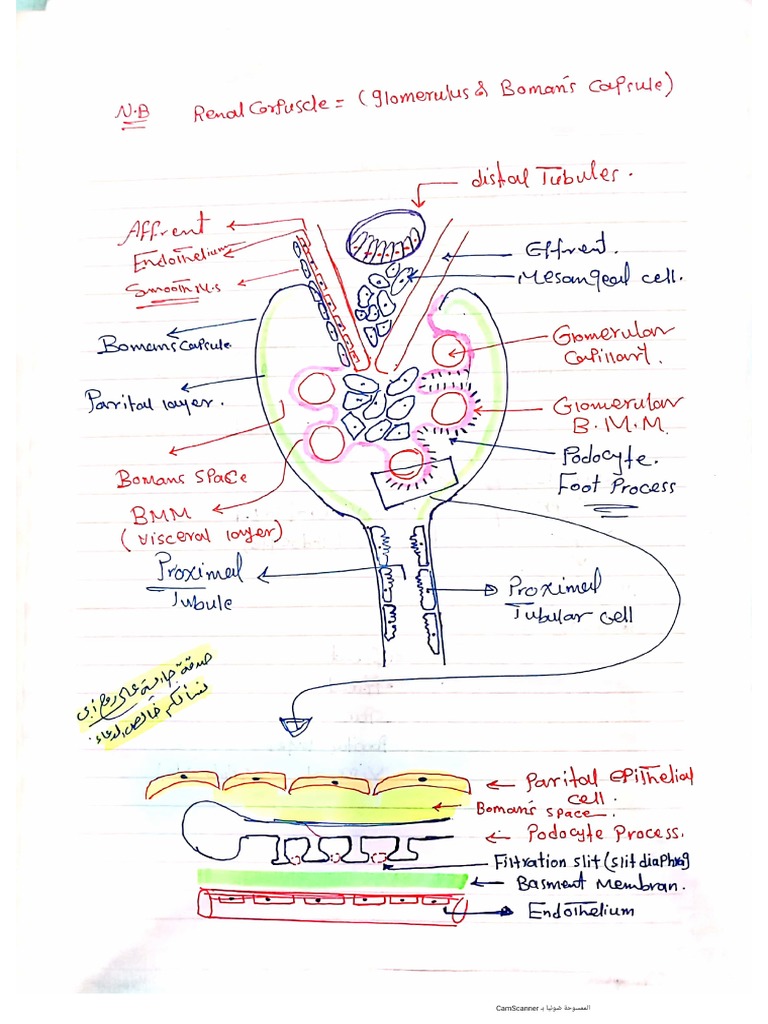 N.B Renal Corpuscle = (Glomerulus & Boman's Capsule)
distal Tubules.
Affrent
Endothelium
Smooth M.s
Effrent.
Mesangeal cell.
Bomans capsule
Glomerular
Capillart.
Parital layer.
Glomerular
B.M.M.
Podocyte.
Foot Process
Bomans Space
BMM
(visceral layer)
Proximal
Tubule
Proximal
Tubular cell
صدقة جارية على روح أبي
نسألكم خالص الدعاء.
Parital epithelial
cell.
Boman's space.
Podocyte Process.
Filtration slit (slit diaphrag
Basment Membran.
Endothelium
الممسوحة ضوئيا بـ CamScanner